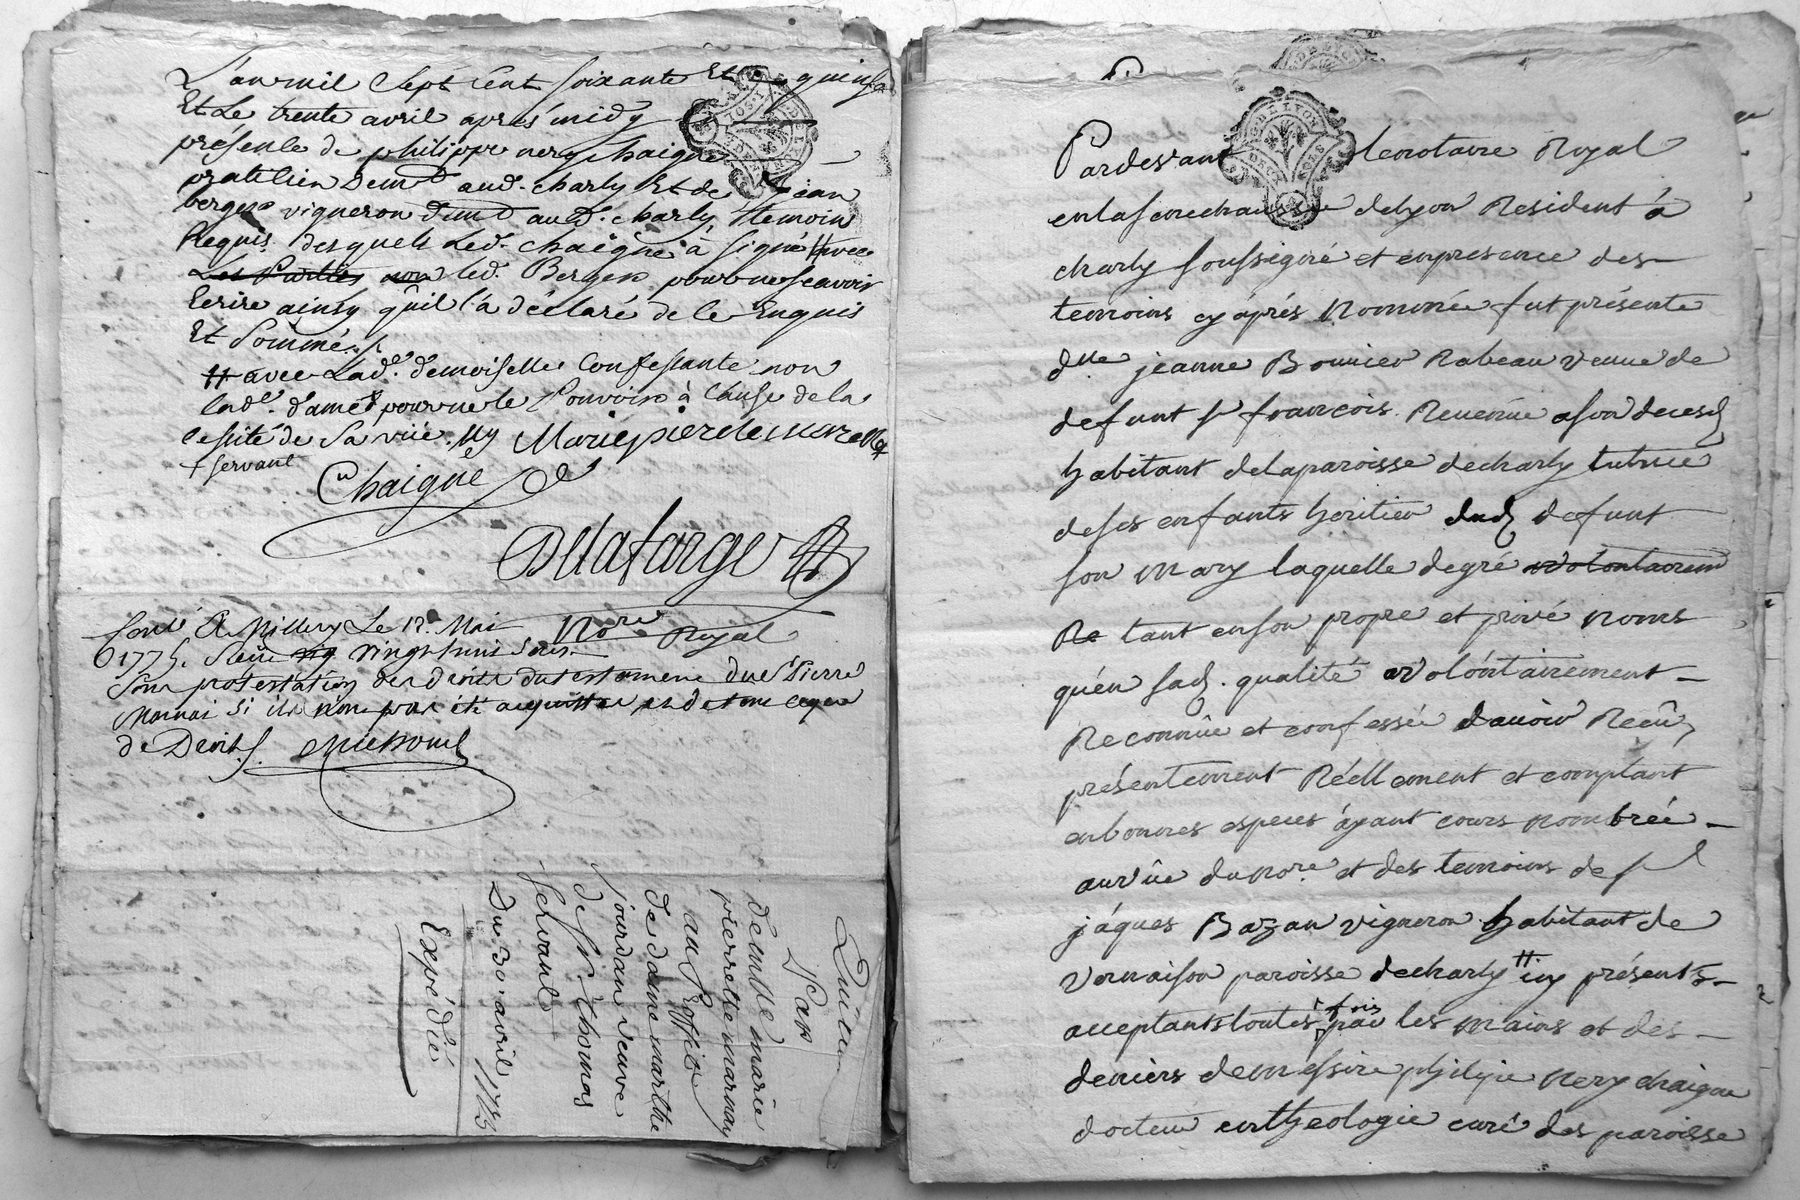 L'an mil Sept Cent soixante Et quinze
Et Le trente avril après midy
présence de philippe nery chaigne
praticien Demt. aud. charly Et de jean
berger vigneron demt aud. charly, temoin
Requis desquels led. chaigne à signé avec
Les Parties non led. Berger pour ne scavoir
Ecrire ainsy qu'il l'a déclaré de le Enquis
Et Sommé
avec Lad. demoiselle Confessante non
lad. dame pour ne le Pouvoir à Cause de la
cessité de Sa vüe
+ servant
Chaigne
Delafarge
Nore Royal
Conté A Millery Le 12. Mai
1775. Recu vingt huit sous
Sous protestation des droits du testament du Sr Pierre
Marnai Si ils n'ont pas été acquittés
de Droits.
Quittance
Par
demlle marie
pierrette marnay
au Proffit
de dame marthe
jourdan veuve
de Sr. thomas
servant
Du 30. avril 1775
Expédié
DEUX SOLS
G. DE LYON
Pardevant Le notaire Royal
en la senechaussée de lyon Resident à
charly soussigné et en presence des
temoins cy après Nommée fut présente
dlle jeanne Bouvier Rabeau veuve de
defunt sr françois Revenue a son decés
habitant de la paroisse de charly tutrice
de ses enfants heritier dud defunt
son mary laquelle de gré volontairem
Re tant en son propre et privé noms
qu'en sad. qualité volontairement
Reconnüe et confessée d'avoir Reçû
présentement Réellement et comptant
en bonnes especes ayant cours nombrée
au vüe du nore et des temoins de sr
jâques Bazan vigneron habitant de
vernaison paroisse de charly icy présents
acceptants toutes fois par les mains et des
deniers de messire philipe nery chaigne
docteur en theologie curé des paroisse